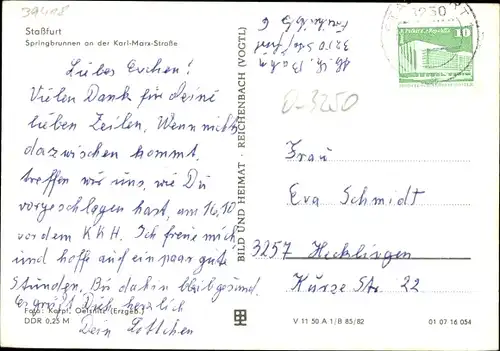 39418
Staßfurt
Springbrunnen an der Karl-Marx-Straße
Liebes Evchen!
Vielen Dank für deine
lieben Zeilen. Wenn nichts
dazwischen kommt,
treffen wir uns, wie Du
vorgeschlagen hast, am 16.10
vor dem KKH. Ich freue mich
und hoffe auf ein paar gute
Stunden. Bis dahin bleib gesund.
Es grüßt Dich herzlich
Dein Lottchen
Foto: Karpf, Oelsnitz (Erzgeb.)
DDR 0,25 M
BILD UND HEIMAT · REICHENBACH (VOGTL)
3250
10
O-3250
Frau
Eva Schmidt
3257 Hecklingen
Kurze Str. 22
V 11 50 A 1/B 85/82
01 07 16 054